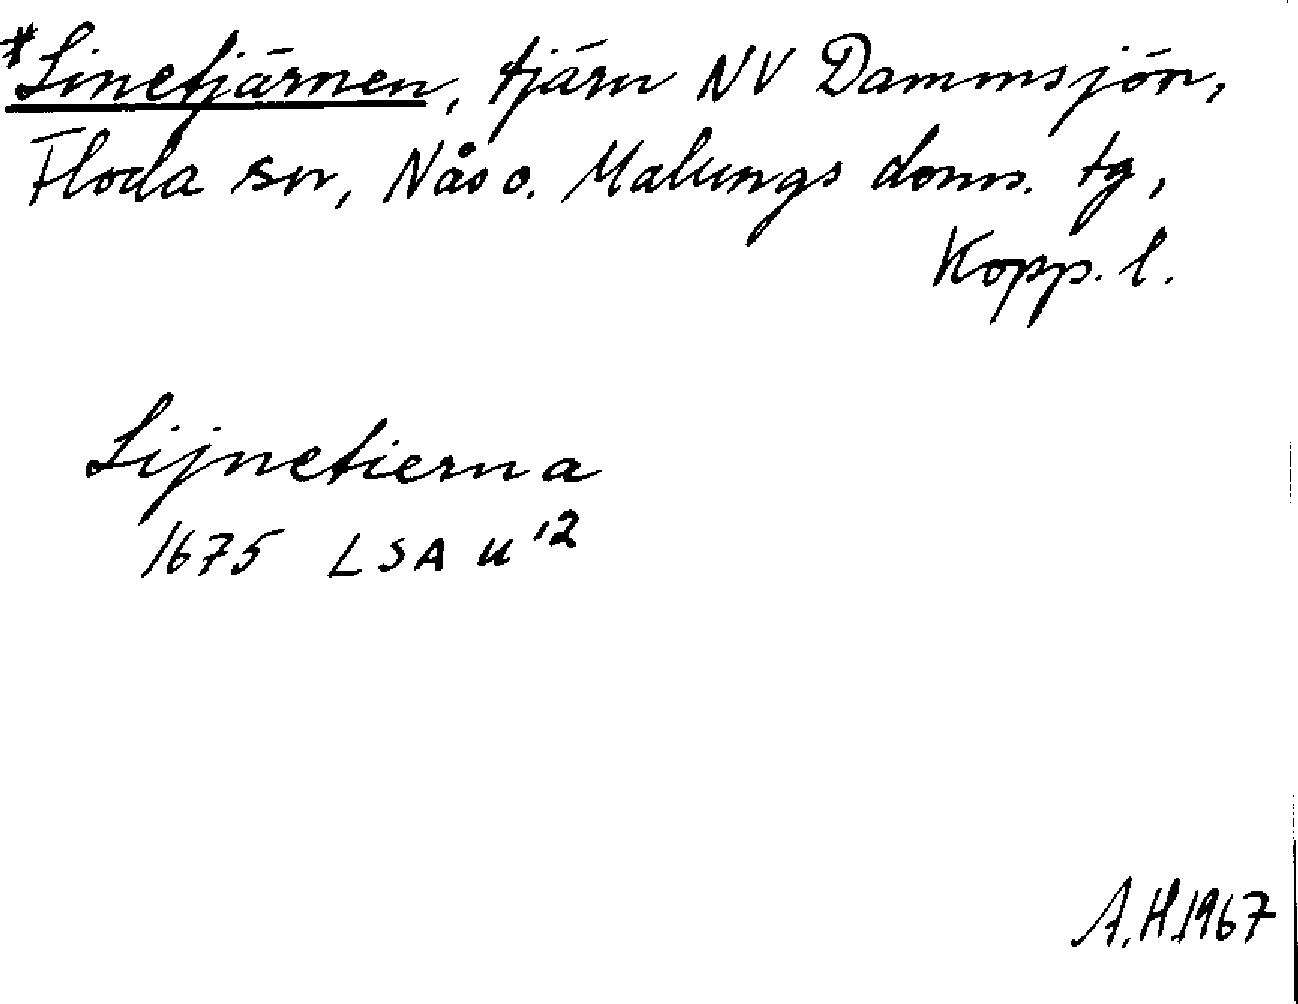 *Linetjärnen, tjärn NV Dammsjön,
Floda sn, Nås o. Malungs doms. tg,
Kopp. l.
Lijnetierna
1675 LSA U '2
A.H. 1967